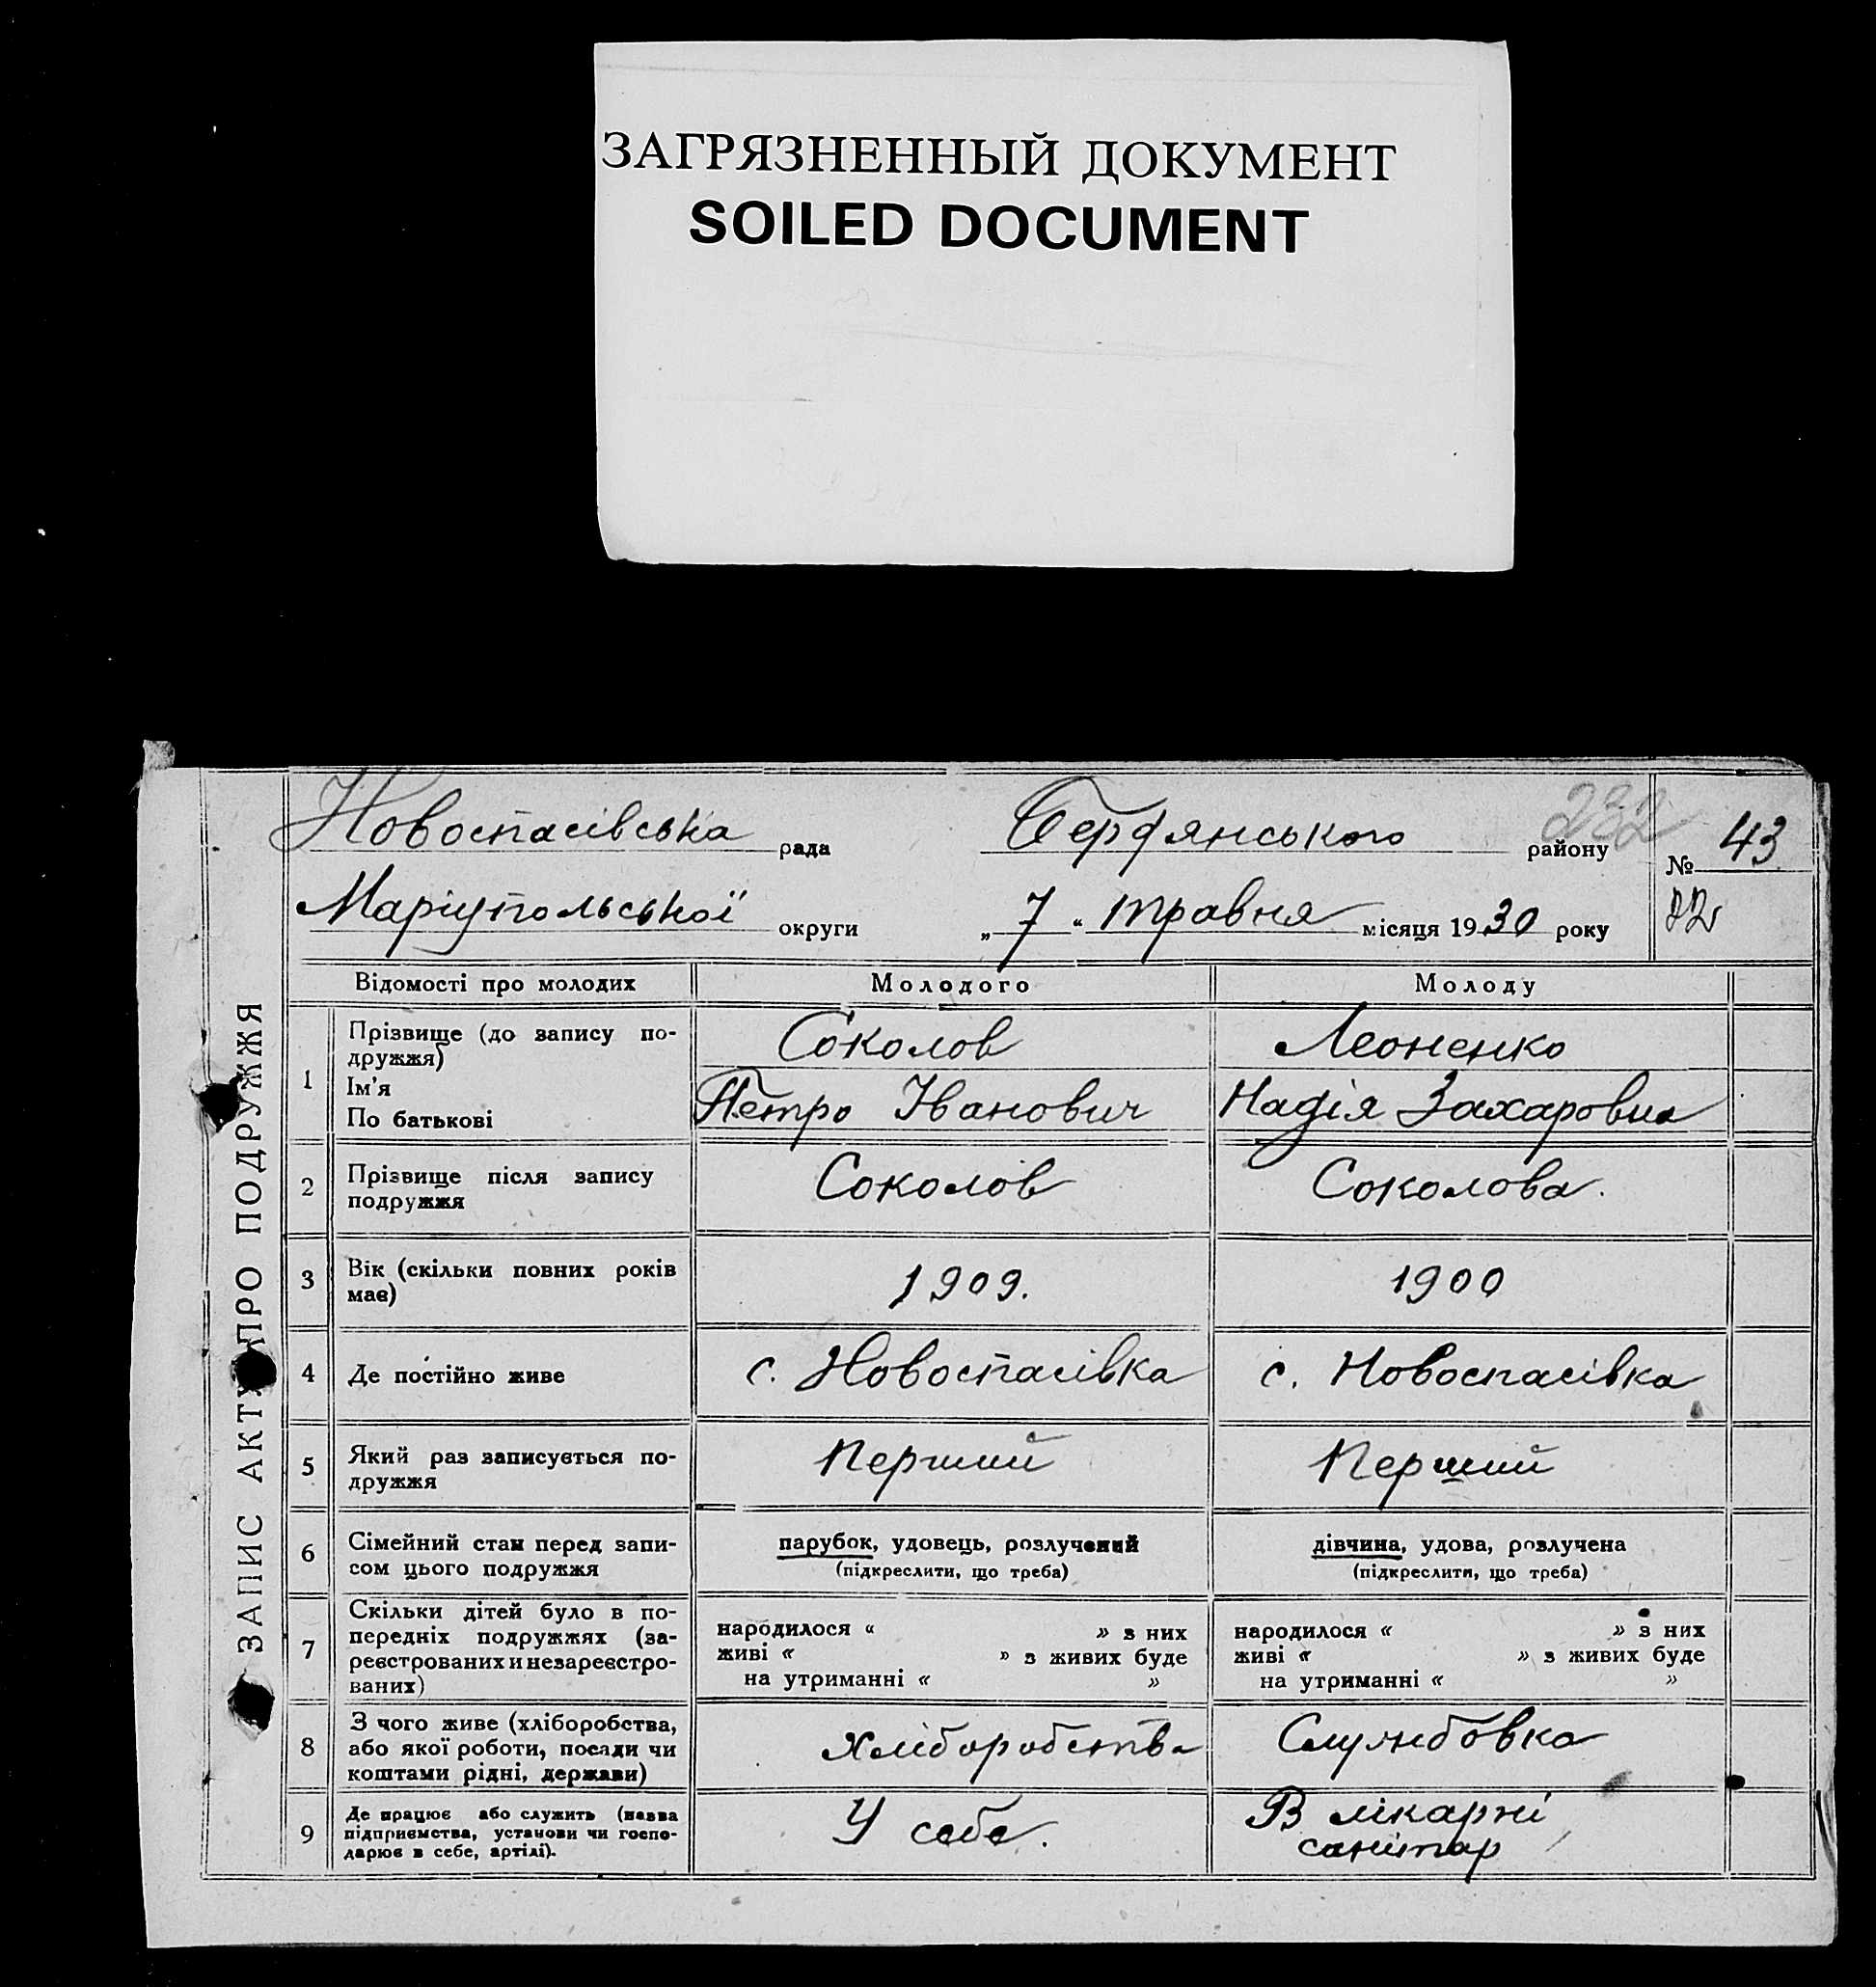 ЗАГРЯЗНЕННЫЙ ДОКУМЕНТ
SOILED DOCUMENT
232
Новоспасівська рада Бердянського району № 43
Маріупольської округи „ 7 “ травня місяця 1930 року 22
ЗАПИС АКТУ ПРО ПОДРУЖЖЯ
Відомості про молодих Молодого Молоду
1 Прізвище (до запису по-
дружжя) Соколов Леоненко
Ім'я
По батькові Петро Іванович Надія Захаровна
2 Прізвище після запису
подружжя Соколов Соколова.
3 Вік (скільки повних років
має) 1909. 1900
4 Де постійно живе с. Новоспасівка с. Новоспасівка
5 Який раз записується по-
дружжя Перший Перший
6 Сімейний стан перед запи-
сом цього подружжя
парубок, удовець, розлучений
(підкреслити, що треба)
дівчина, удова, розлучена
(підкреслити, що треба)
7 Скільки дітей було в по-
передніх подружжях (за-
реєстрованих и незареєстро-
ваних)
народилося “ » з них
живі “ » з живих буде
на утриманні “ »
народилося “ » з них
живі “ » з живих буде
на утриманні “ »
8 З чого живе (хліборобства,
або якої роботи, посади чи
коштами рідні, держави)
хліборобства Службовка
9 Де працює або служить (назва
підприємства, установи чи госпо-
дарює в себе, артілі).
У себе. В лікарні
санітар